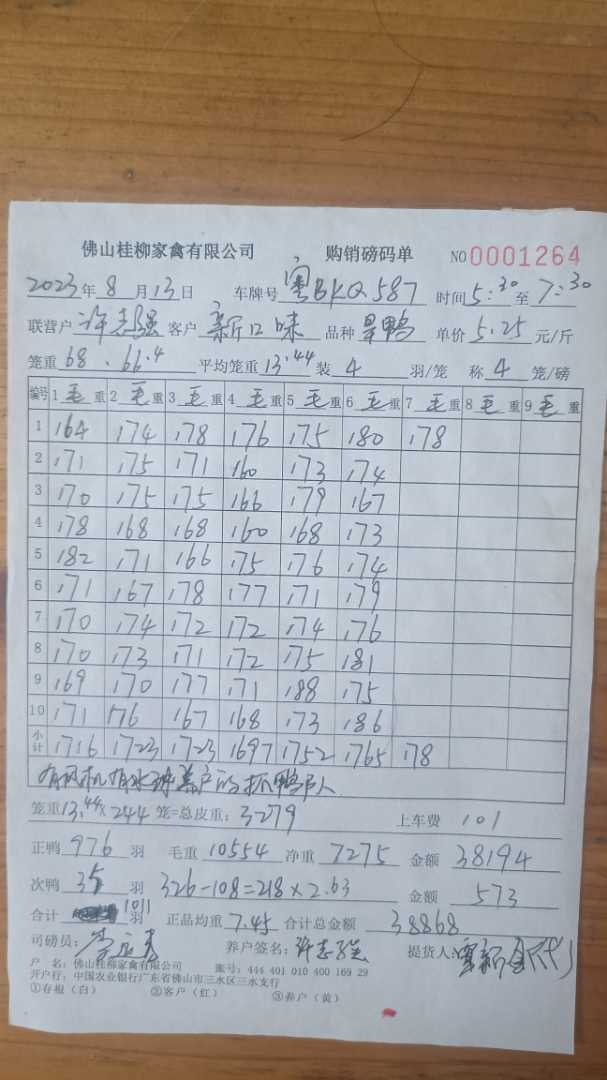 佛山桂柳家禽有限公司 购销磅码单 NO 0001264
2023年 8 月 13 日 车牌号 粤BKQ587 时间 5:30 至 7:30
联营户 许志强 客户 新口味 品种 旱鸭 单价 5.25 元/斤
笼重 68.66.4 平均笼重 13.44 装 4 羽/笼 称 4 笼/磅
编号 1 毛 重 2 毛 重 3 毛 重 4 毛 重 5 毛 重 6 毛 重 7 毛 重 8 毛 重 9 毛 重
1 164 174 178 176 175 180 178
2 171 175 171 160 173 174
3 170 175 175 166 179 167
4 178 168 168 160 168 173
5 182 171 166 175 176 174
6 171 167 178 177 171 179
7 170 174 172 172 174 176
8 170 173 171 172 175 181
9 169 170 177 171 188 175
10 171 176 167 168 173 186
小计 1716 1723 1723 1697 1752 1765 178
有风机有水 养户 抓鸭 人
笼重 13.44 × 244 笼=总皮重: 3279 上车费 101
正鸭 976 羽 毛重 10554 净重 7275 金额 38194
次鸭 35 羽 326-108=218×2.63 金额 573
合计 1011 羽 正品均重 7.45 合计总金额 38868
司磅员: 养户签名: 许志强 提货人:
户 名: 佛山桂柳家禽有限公司 账号: 444 401 010 400 169 29
开户行: 中国农业银行广东省佛山市三水区三水支行
①存根(白) ②客户(红) ③养户(黄)